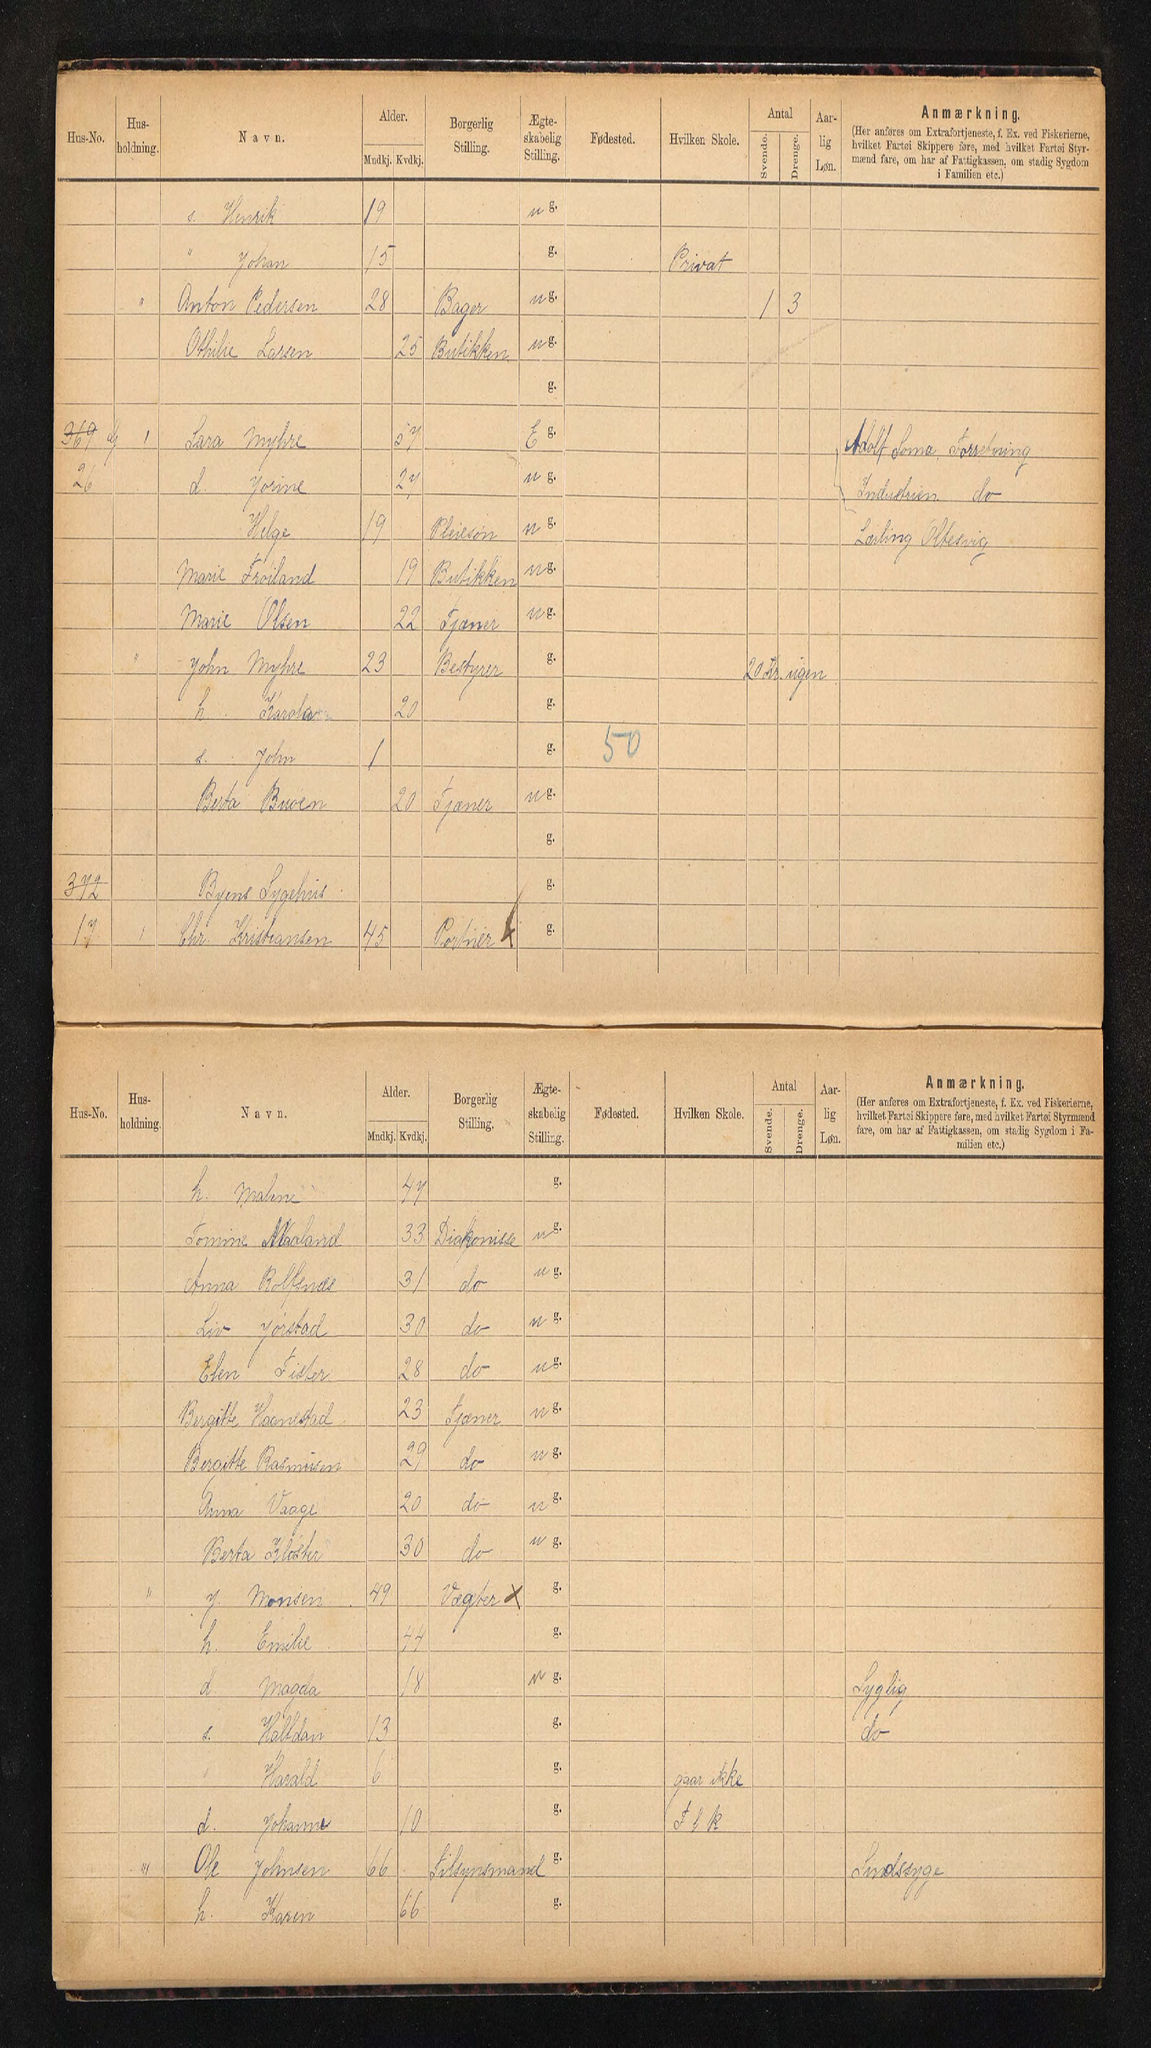 Hus-No. Hus-holdning. Navn. Alder. Mndkj. Kvdkj. Borgerlig Stilling. Ægte-skabelig Stilling. Fødested. Hvilken Skole. Antal Svende. Drenge. Aar-lig Løn. Anmærkning.
(Her anføres om Extrafortjeneste, f. Ex. ved Fiskerierne,
hvilket Fartøi Skippere føre, med hvilket Fartøi Styr-
mænd fare, om har af Fattigkassen, om stadig Sygdom
i Familien etc.)
s. Henrik 19 u g.
" Johan 15 g. Privat
" Anton Pedersen 28 Bager u g. 1 3
Othilie Larsen 25 Butikken u g.
g.
369 1 Lara Myhre 57 E g. Adolf Soma, Forretning
26 d. Jorine 27 u g. Industrien do
Helge 19 Pleiesøn u g. Lærling Oltesvig
Marie Frøiland 19 Butikken u g.
Marie Olsen 22 Tjæner u g.
" John Myhre 23 Bestyrer g. 20 Kr. ugen
h. Karola 20 g.
s. John 1 g. 50
Berta Buoen 20 Tjæner u g.
g.
372 Byens Sygehus g.
17 1 Chr. Kristiansen 45 Portner g.
Hus-No. Hus-holdning. Navn. Alder. Mndkj. Kvdkj. Borgerlig Stilling. Ægte-skabelig Stilling. Fødested. Hvilken Skole. Antal Svende. Drenge. Aar-lig Løn. Anmærkning.
(Her anføres om Extrafortjeneste, f. Ex. ved Fiskerierne,
hvilket Fartøi Skippere føre, med hvilket Fartøi Styrmænd
fare, om har af Fattigkassen, om stadig Sygdom i Fa-
milien etc.)
h. Maline 47 g.
Tomine Maaland 33 Diakonisse u g.
Anna Rolfsnes 31 do u g.
Liv Jørstad 30 do u g.
Elen Fister 28 do u g.
Bergitte Haanestad 23 Tjæner u g.
Bergitte Rasmusen 29 do u g.
Anna Vaage 20 do u g.
Berta Kloster 30 do u g.
" J. Monsen 49 Vægter x g.
h. Emilie 44 g.
d. Magda 18 u g. Syglig
s. Halfdan 13 g. do
" Harald 6 g. gaar ikke
d. Johanne 10 g. F S K
" Ole Johnsen 66 Tilsynsmand g. Sindssyge
h. Karen 66 g.